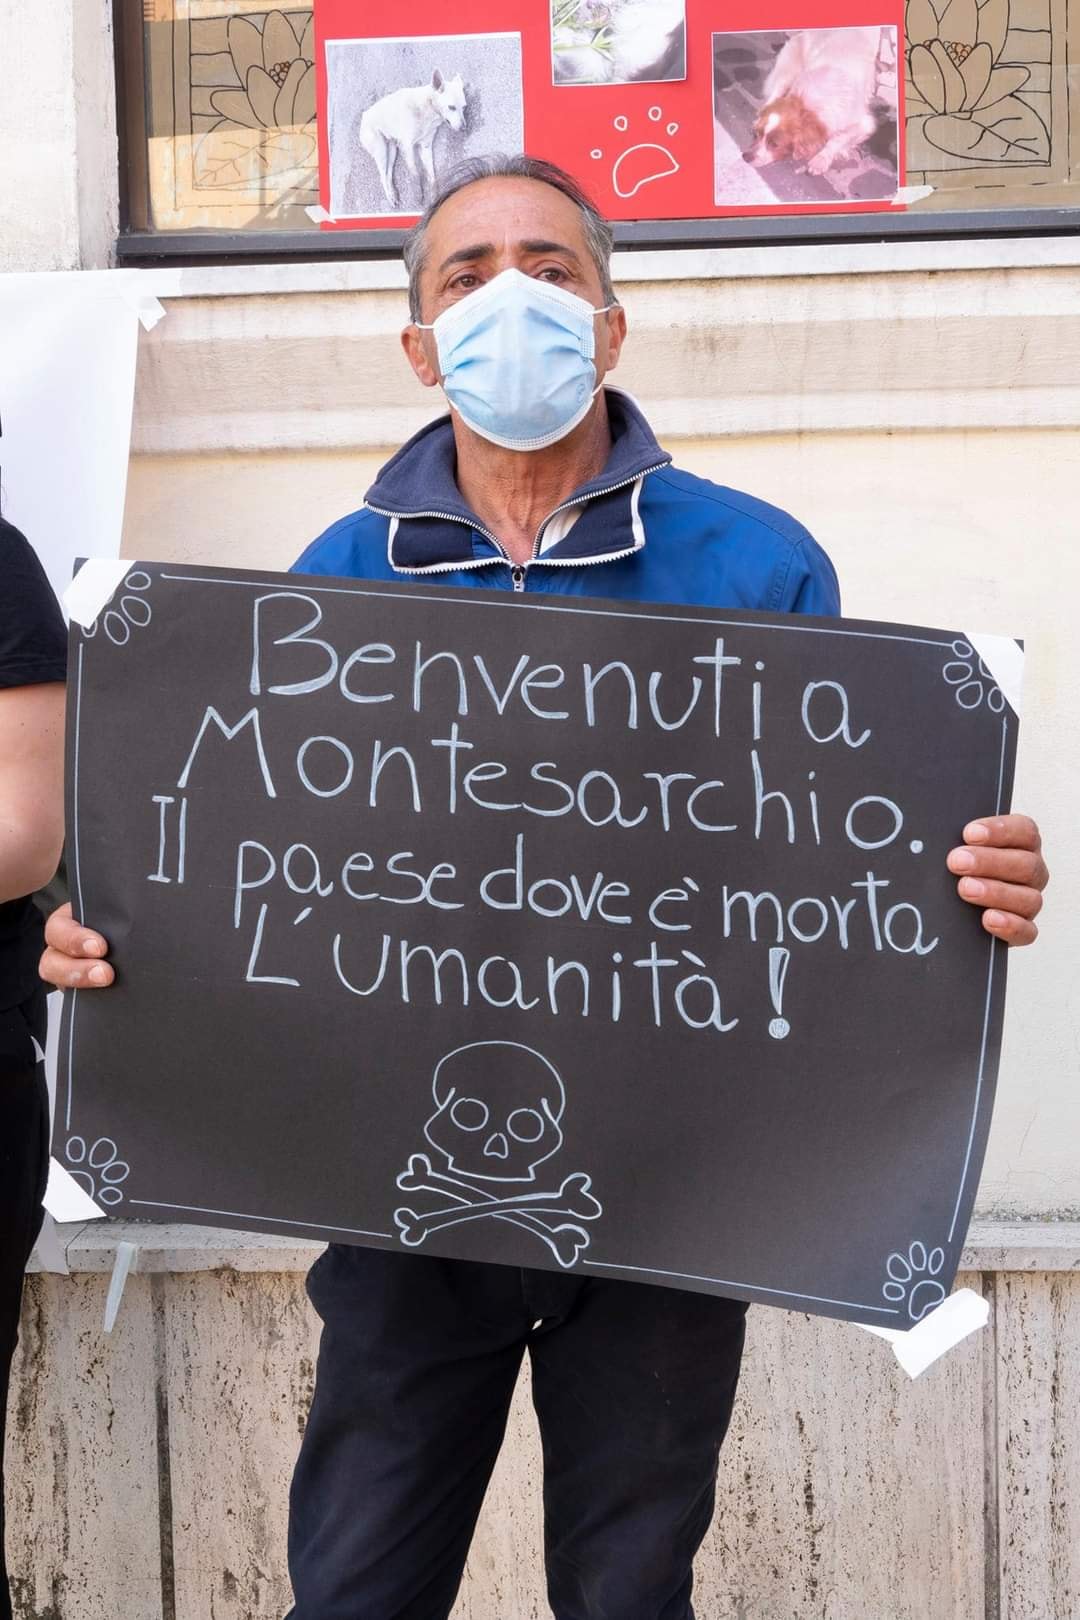 Benvenuti a
Montesarchio.
Il paese dove è morta
L'umanità!